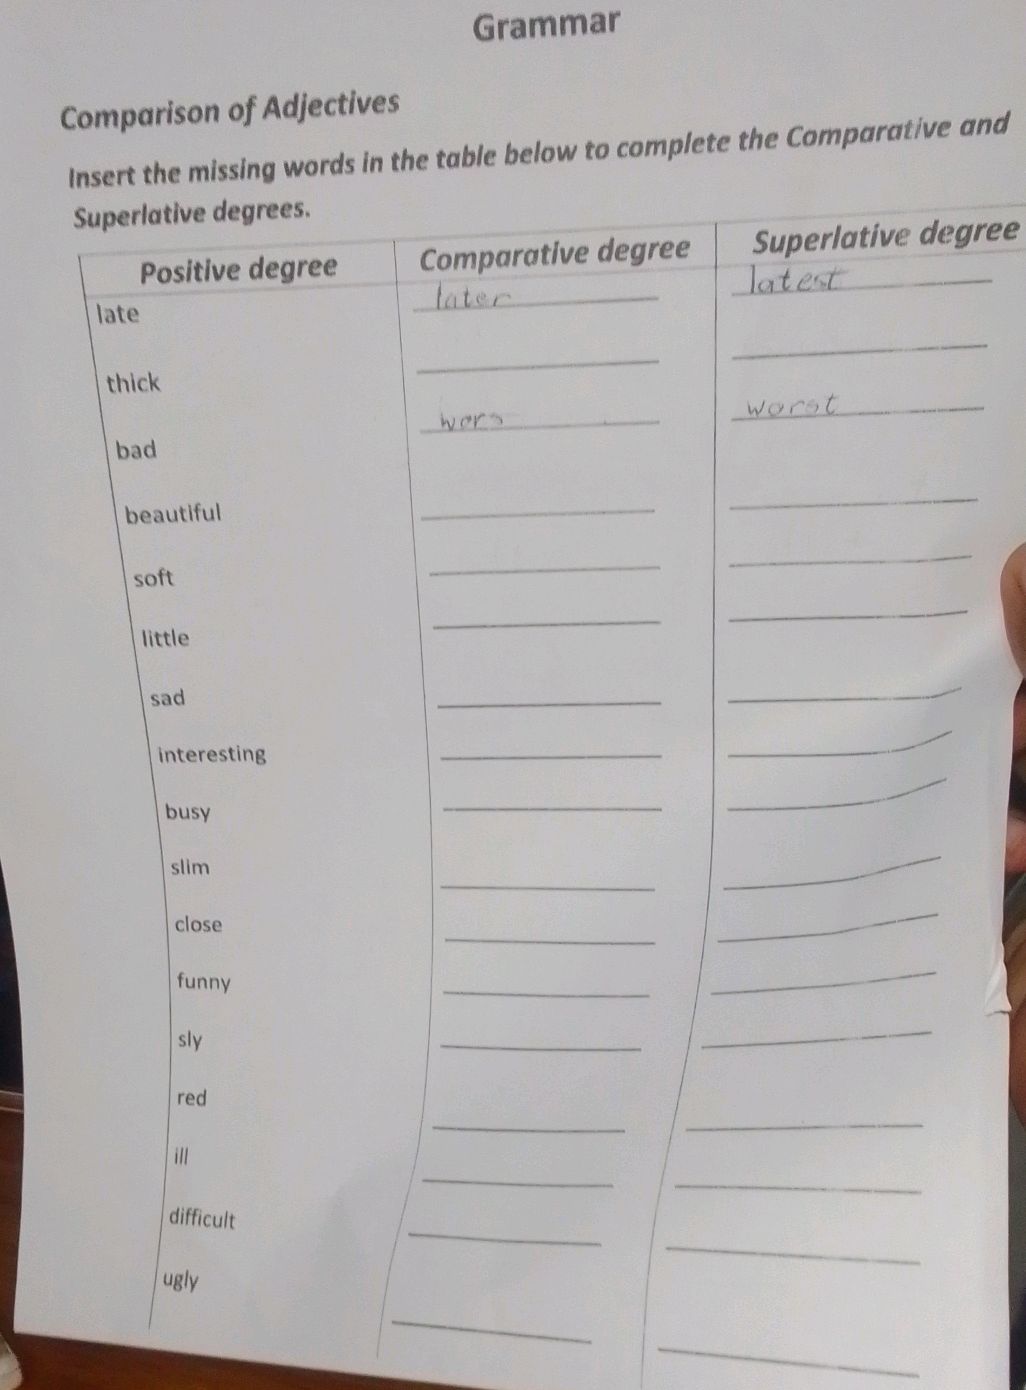 Grammar
Comparison of Adjectives
Insert the missing words in the table below to complete the Comparative and
Superlative degrees.
Positive degree Comparative degree Superlative degree
late later latest
thick
bad wors worst
beautiful
soft
little
sad
interesting
busy
slim
close
funny
sly
red
ill
difficult
ugly